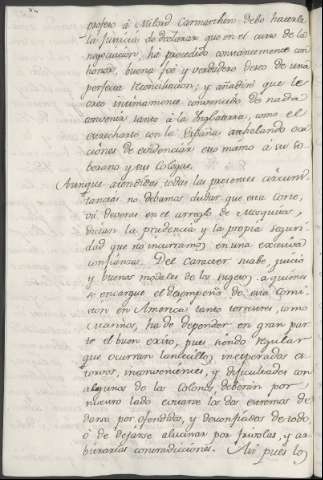 profeso á Milord Carmarthen debo hacerle
la justicia de declarar que en el curso de la
negociacion há procedido constantemente con
honor, buena fé y verdadero deseo de una
perfecta reconciliacion; y añadiré que le
creo intimamente convencido de nada
convenir tanto á la Inglaterra, como el
estrecharse con la España anhelando oca
ciones de evidenciar esa maxima á su So
berano y sus Colegas.
Aunque atendidas todas las presentes circuns
tancias no debamos dudar que esta Corte,
vá deveras en el arreglo de Mosquitos,
dictan la prudencia y la propia seguri
dad que no incurramos en una excesiva
confianza. Del caracter sabe, juicio
y buenos modales de los sugetos á quienes
se encargue el desempeño de esta Comi
sion en America tanto terrestres, como
marinos, ha de depender en gran par
te el buen exito, pues siendo regular
que ocurran lancecillos inesperados es
torvos, inconvenientes, y dificultades con
algunos de los Colonos deberán por
nuestro lado evitarse los dos extremos de
darse por ofendidos, y desconfiados de todo
ó de dejarse alucinar por frivolas, y ar
bitrarias contradicciones. Asi pues los